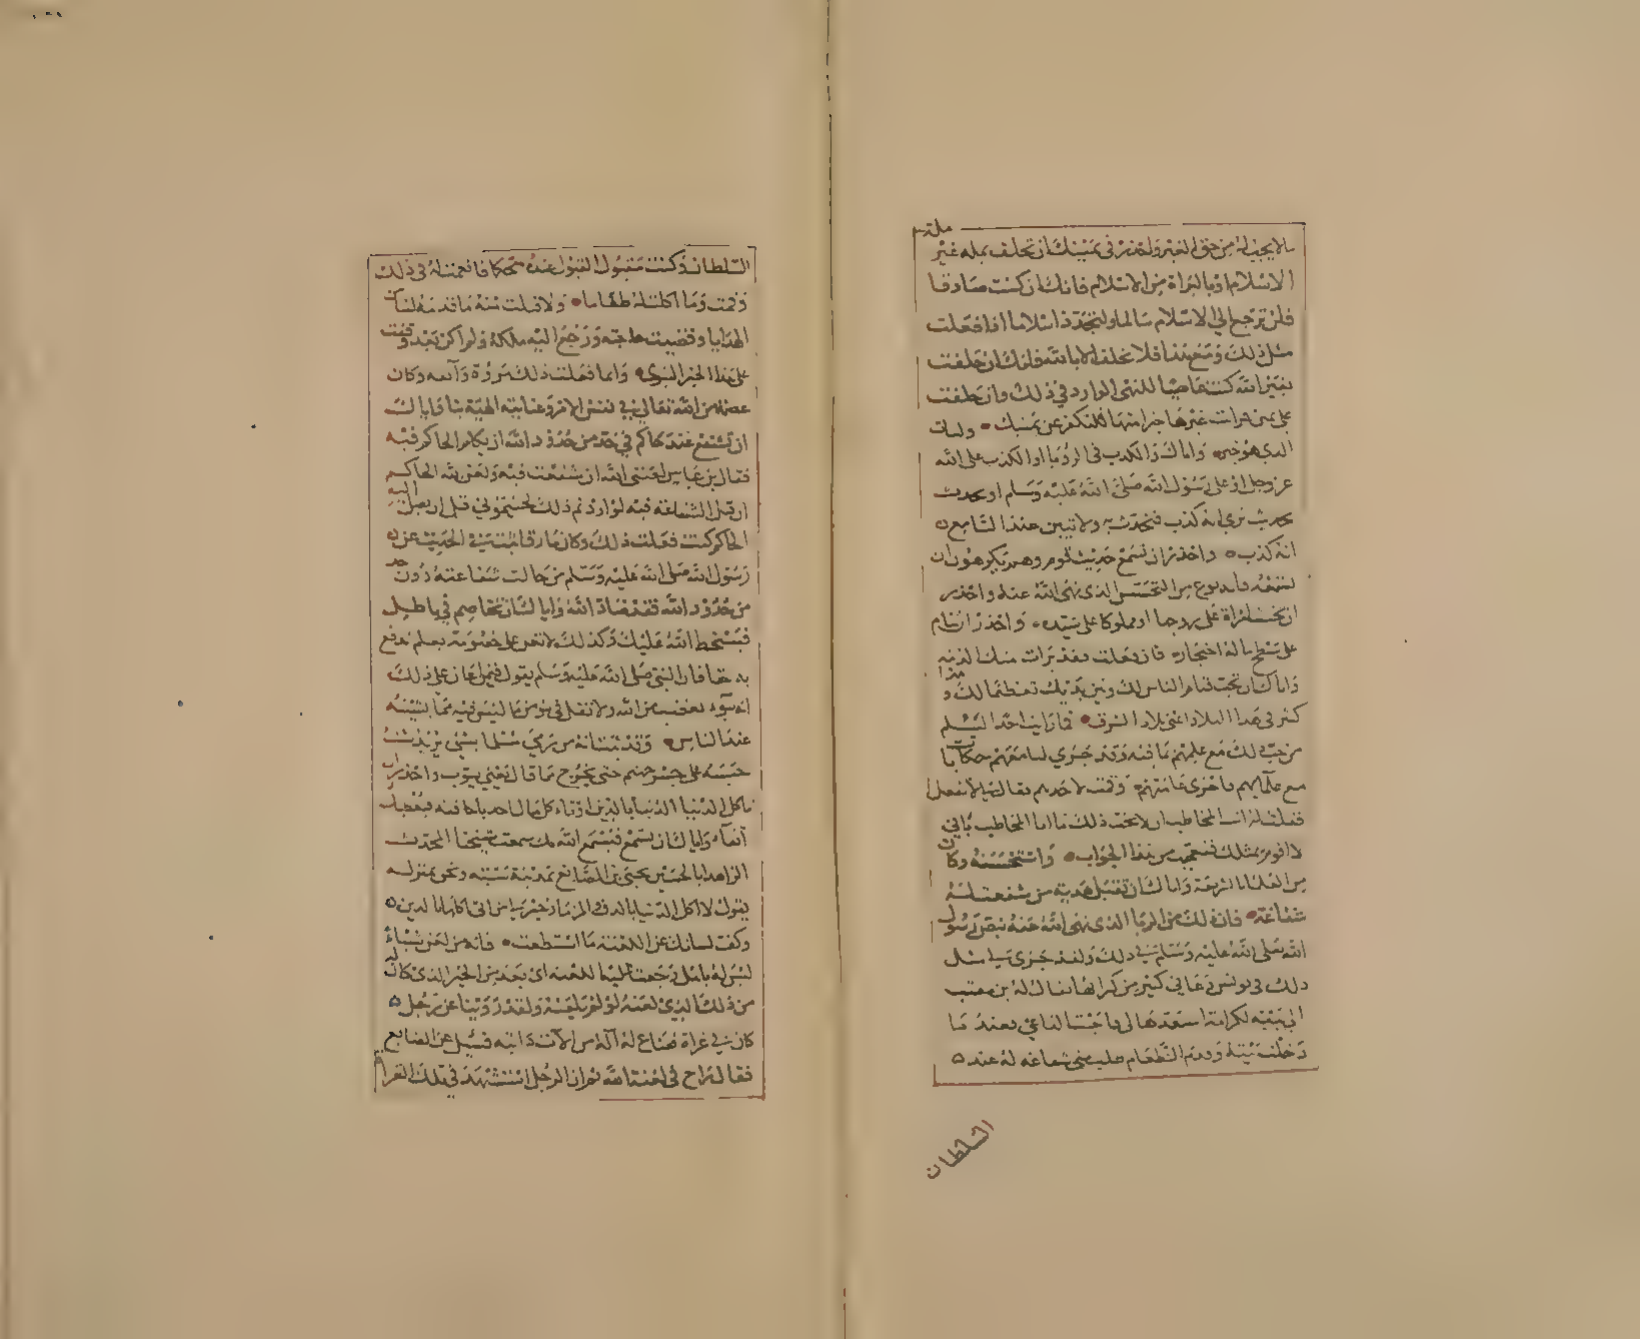 ملة
ما لا يجب له من حق الغير واحذر في يمينك ان تحلف بملة غير
الاسلام او بالبراة من الاسلام فانك ان كنت صادقا
فلن ترجع الى الاسلام سالما ولتجدد اسلاما اذا فعلت
مثل ذلك ومع هذا فلا تحلف الا بالله فانك ان حلفت
بغير الله كنت عاصيا للنهي الوارد في ذلك وان حلفت
على يمين فرات غيرها خيرا منها فلتكفر عن يمينك ولتات
الذي هو خير واياك والكذب في الرؤيا او الكذب على الله
عز وجل او على رسول الله صلى الله عليه وسلم او تحدث
بحديث ترى انه كذب فتحدث به ولا تبين عند السامع
انه كذب واحذر ان تسمع حديث قوم وهم يكرهون ان
تسمعه فانه نوع من التجسس الذي نهى الله عنه واحذر
ان تخبب امراة على زوجها او مملوكا على سيده واحذر ان تنام
على سطح ما له احتجار فان فعلت فقد برات منك الذمة
واياك ان تحب قيام الناس لك وبين يديك تعظيما لك و هذا
كثير في هذا البلاد اعني بلاد الشرق فما رايت احدا يسلم
من حب ذلك مع علمهم بما فيه وقد جرى لنا معهم حكايات
مع علمائهم فاحرى عامتهم وقمت لاحدهم فقال لي لا تفعل
فقلت له انت المخاطب ان لا تحب ذلك ما انا المخاطب باني
لا اقوم لمثلك فتعجب من هذا الجواب واستحسنه وكان
من العلماء واياك ان تقبل هدية من شفعت له
شفاعة فان ذلك من الربا الذي نهى الله عنه بنص رسول
الله صلى الله عليه وسلم في ذلك ولقد جرى لي مثل
ذلك في تونس دعاني كبير من كبرائها يقال له بن معتب
الى بيته لكرامة استعدها لي فاجبت الداعي فعندما
دخلت بيته وقدم الطعام طلب مني شفاعة له عند
السلطان
السلطان وكنت مقبول القول عنده متحكما فانعمت له في ذلك
وقمت وما اكلت له طعاما ولا قبلت منه ما قدمه لنا من
الهدايا وقضيت حاجته ورجع اليه ملكه ولم اكن بعد وقفت
على هذا الخبر النبوي وانما فعلت ذلك مروة وانفة وكان
عصمة من الله تعالى في نفس الامر وعناية الهية بنا واياك
ان تشفع عند حاكم في حد من حدود الله ان يكلم الحاكم فيه
فقال بن عباس لعنني الله ان شفعت فيه ولعن الله الحاكم
ان قبل الشفاعة فيه لو اردتم ذلك لجئتموني قبل ان يصل الى
الحاكم كنت فعلت ذلك وكان سارقا ثبت في الحديث عن
رسول الله صلى الله عليه وسلم من حالت شفاعته دون حد
من حدود الله فقد ضاد الله واياك ان تخاصم في باطل
فيسخط الله عليك وكذلك لا تعن على خصومة بعلم تدفع
به حقا فان النبي صلى الله عليه وسلم يقول فيمن اعان على ذلك
انه يبوء بغضب من الله ولا تقل في مومن ما ليس فيه مما يشينه
عند الناس وقد ثبت انه من رمى مسلما بشيء يريد شينه
حبسه على جسر جهنم حتى يخرج مما قال يعني يتوب واحذر ان
تاكل الدنيا بالدين
واياك ان
الزاهد ابا الحسين يحيى بن الصائغ بمدينة سبتة ونحن بمنزله
يقول لاكل الدنيا بالدف والمزمار خير من اني اكلها بالدين
وكف لسانك عن اللعنة ما استطعت فانه من لعن شيئا
ليس له باهل رجعت عليه اللعنة اي بعد من الخير الذي كان له
من ذلك الذي لعنه لو لم يلعنه ولقد روينا عن رجل
كان في غزاة فضاع له آلة من الات دابته فسئل عن الضائع
فقال راح في لعنة الله ثم ان الرجل استشهد في تلك الغزاة